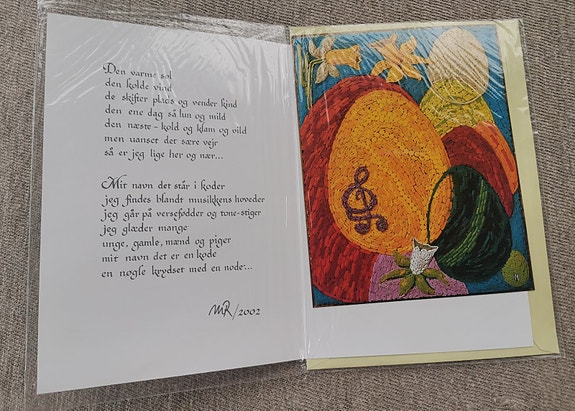 Den varme sol
den kolde vind
de skifter plads og vender kind
den ene dag så lun og mild
den næste - kold og klam og vild
men uanset det sære vejr
så er jeg lige her og nær...
Mit navn det står i koder
jeg findes blandt musikkens hoveder
jeg går på versefødder og tone-stiger
jeg glæder mange
unge, gamle, mænd og piger
mit navn det er en kode
en nøgle krydset med en node...
MR/2002